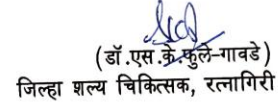 (डॉ.एस.के.फुले-गावडे)
जिल्हा शल्य चिकित्सक, रत्नागिरी